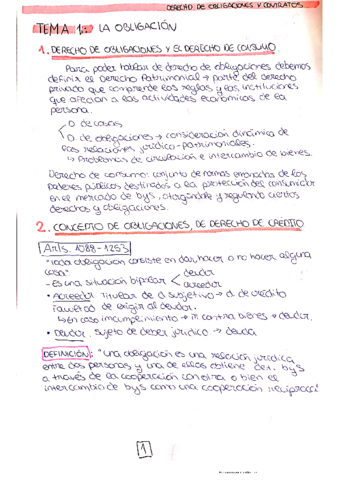 DERECHO DE OBLIGACIONES Y CONTRATOS
TEMA 1: LA OBLIGACIÓN
1. DERECHO DE OBLIGACIONES Y EL DERECHO DE CONSUMO
Para poder hablar de derecho de obligaciones debemos
definir el Derecho Patrimonial → parte del derecho
privado que comprende las reglas y las instituciones
que afectan a las actividades económicas de la
persona.
D. de cosas
D. de obligaciones → consideración dinámica de
las relaciones jurídico-patrimoniales.
↳ Problemas de circulación e intercambio de bienes.
Derecho de consumo: conjunto de normas emanadas de los
poderes públicos destinados a la protección del consumidor
en el mercado de bys, otorgándole y regulando ciertos
derechos y obligaciones.
2. CONCEPTO DE OBLIGACIONES, DE DERECHO DE CRÉDITO
Arts. 1088-1253
"Toda obligación consiste en dar, hacer o no hacer alguna
cosa"
- Es una situación bipolar < deudor
acreedor
• Acreedor: titular de d. subjetivo → d. de crédito
facultad de exigir al deudor.
↳ en caso incumplimiento → ir contra bienes → deudor.
• Deudor: sujeto de deber jurídico → deuda
DEFINICIÓN: "una obligación es una relación jurídica
entre dos personas y una de ellas obtiene det. bys
a través de la cooperación con otra o bien el
intercambio de bys como una cooperación recíproca"
1